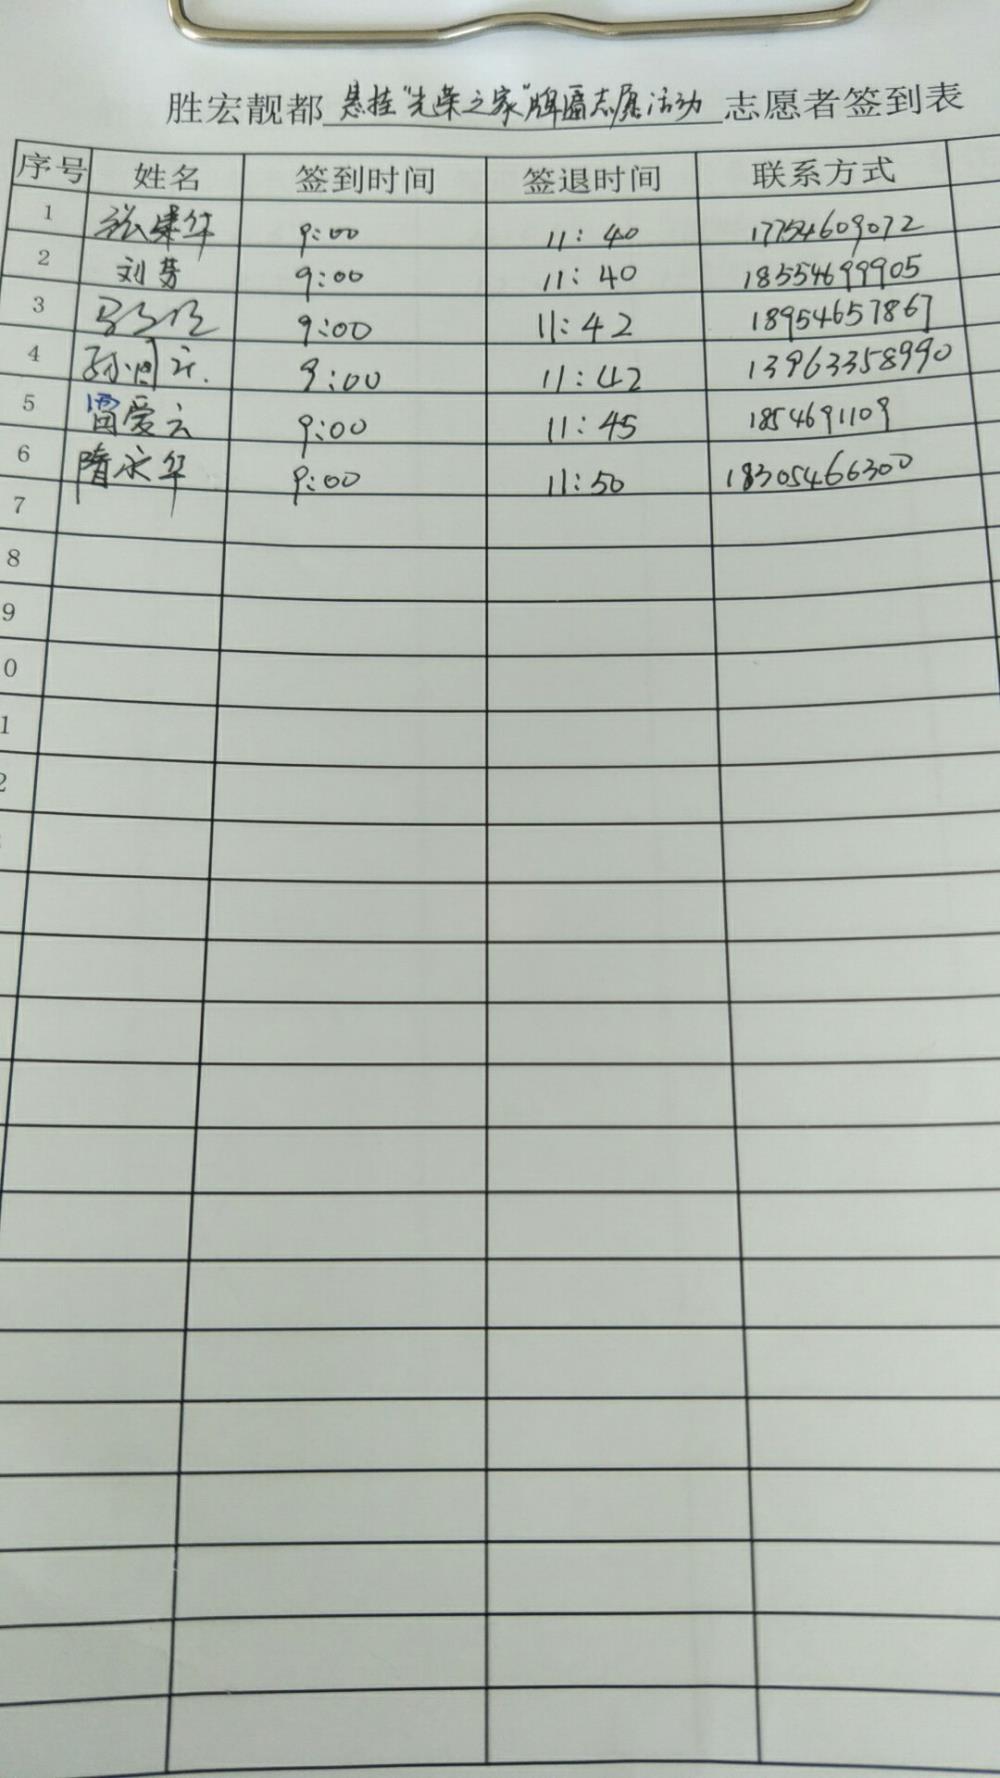 胜宏靓都 悬挂"光荣之家"牌匾志愿活动 志愿者签到表
序号 姓名 签到时间 签退时间 联系方式
1 张建华 9:00 11:40 17754609072
2 刘芳 9:00 11:40 18554699905
3 9:00 11:42 18954657867
4 9:00 11:42 13963358990
5 雷爱云 9:00 11:45 1854691109
6 隋永华 9:00 11:50 18305466300
7
8
9
0
1
2